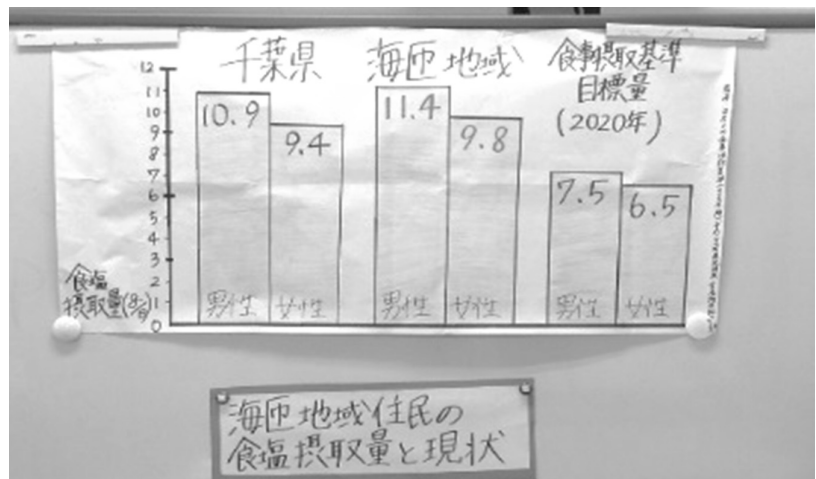 千葉県
海匝地域
食事摂取基準
目標量
(2020年)
12
11
10
9
8
7
6
5
4
3
2
1
0
10.9
9.4
11.4
9.8
7.5
6.5
食塩
摂取量(g/日)
男性
女性
男性
女性
男性
女性
海匝地域住民の
食塩摂取量と現状